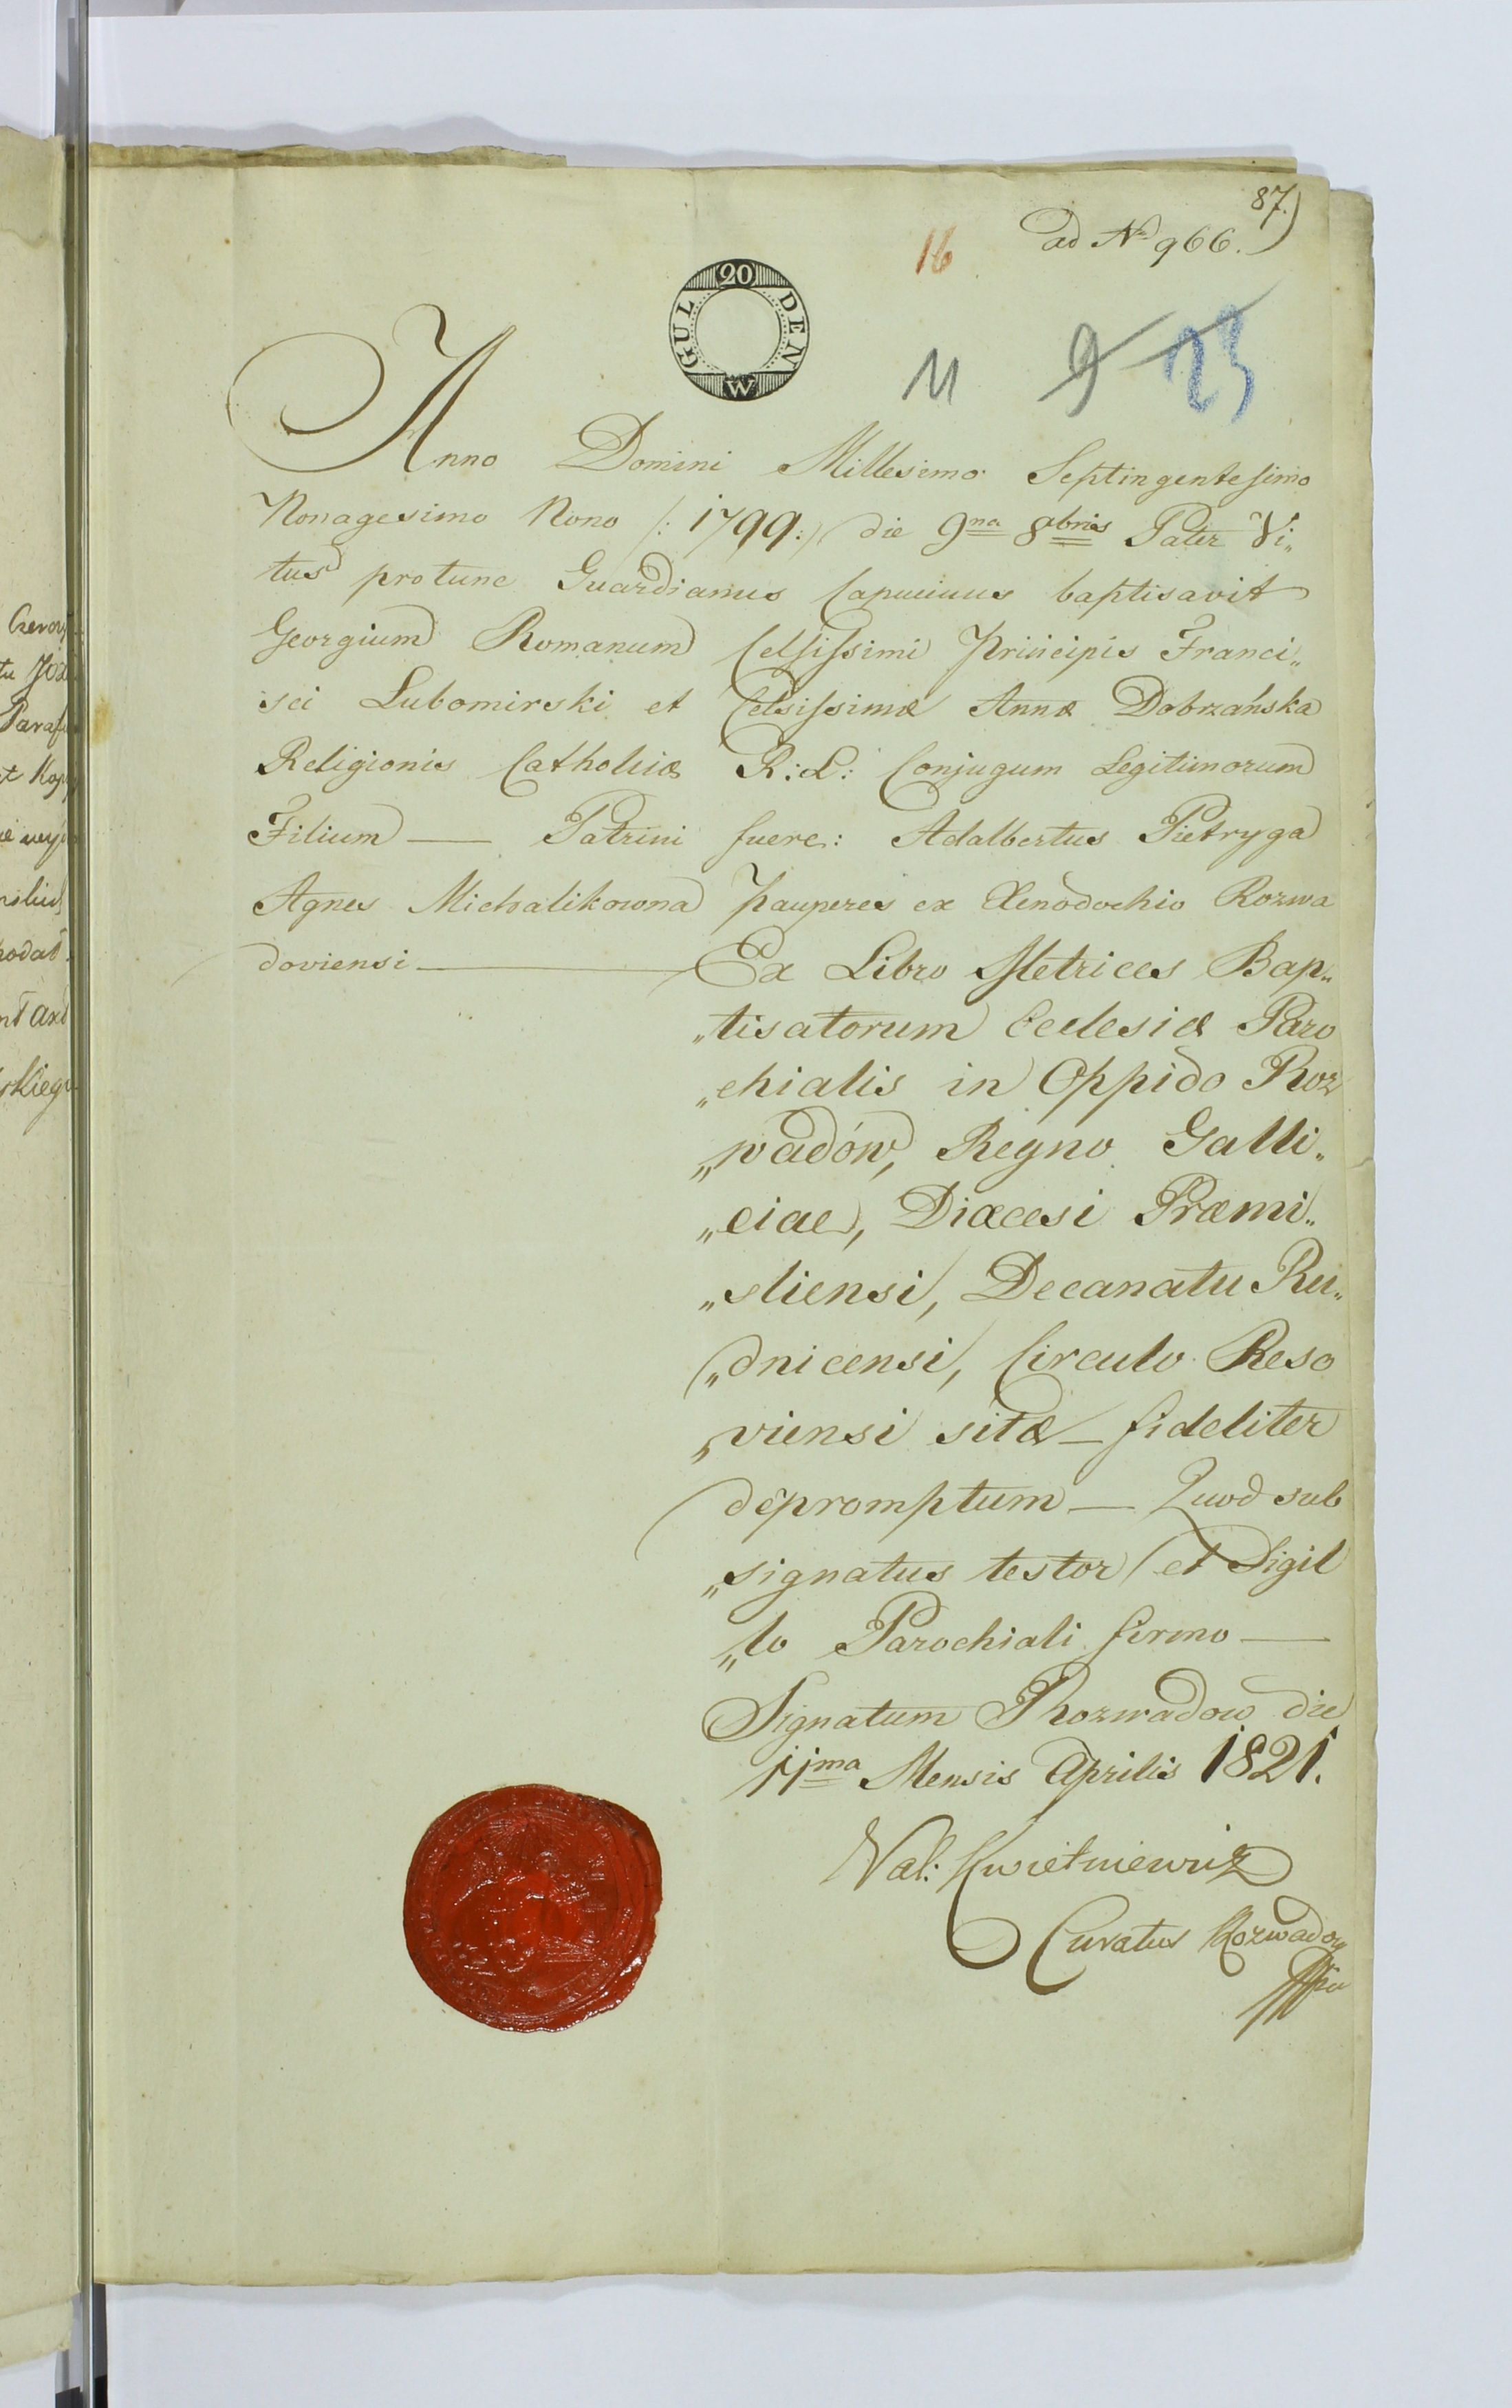 87.)
ad No 966.
16
20 GULDEN W
11 9 23
Anno Domini Millesimo Septingentesimo
Nonagesimo Nono /: 1799 :/ die 9na 8bris Pater Vi„
tus protunc Guardianus Capucinus baptisavit
Georgium Romanum Celsissimi Principis Franci„
sci Lubomirski et Celsissimæ Annæ Dobrzańska
Religionis Catholicæ R: L: Conjugum Legitimorum
Filium — Patrini fuere: Adalbertus Pietryga
Agnes Michalikowna pauperes ex Xenodochio Rozwa
doviensi — Ex Libro Metrices Bap„
„tisatorum Ecclesiæ Paro
„chialis in Oppido Roz
„wadów, Regno Galli„
„ciae, Diæcesi Præmi„
„sliensi, Decanatu Ru„
„dnicensi, Circulo Reso
„viensi sitæ — fideliter
depromptum — Quod sub
„signatus testor et Sigil
„lo Parochiali firmo —
Signatum Rozwadow die
11ma Mensis Aprilis 1821.
Val: Kwietniewicz
Curatus Rozwadov